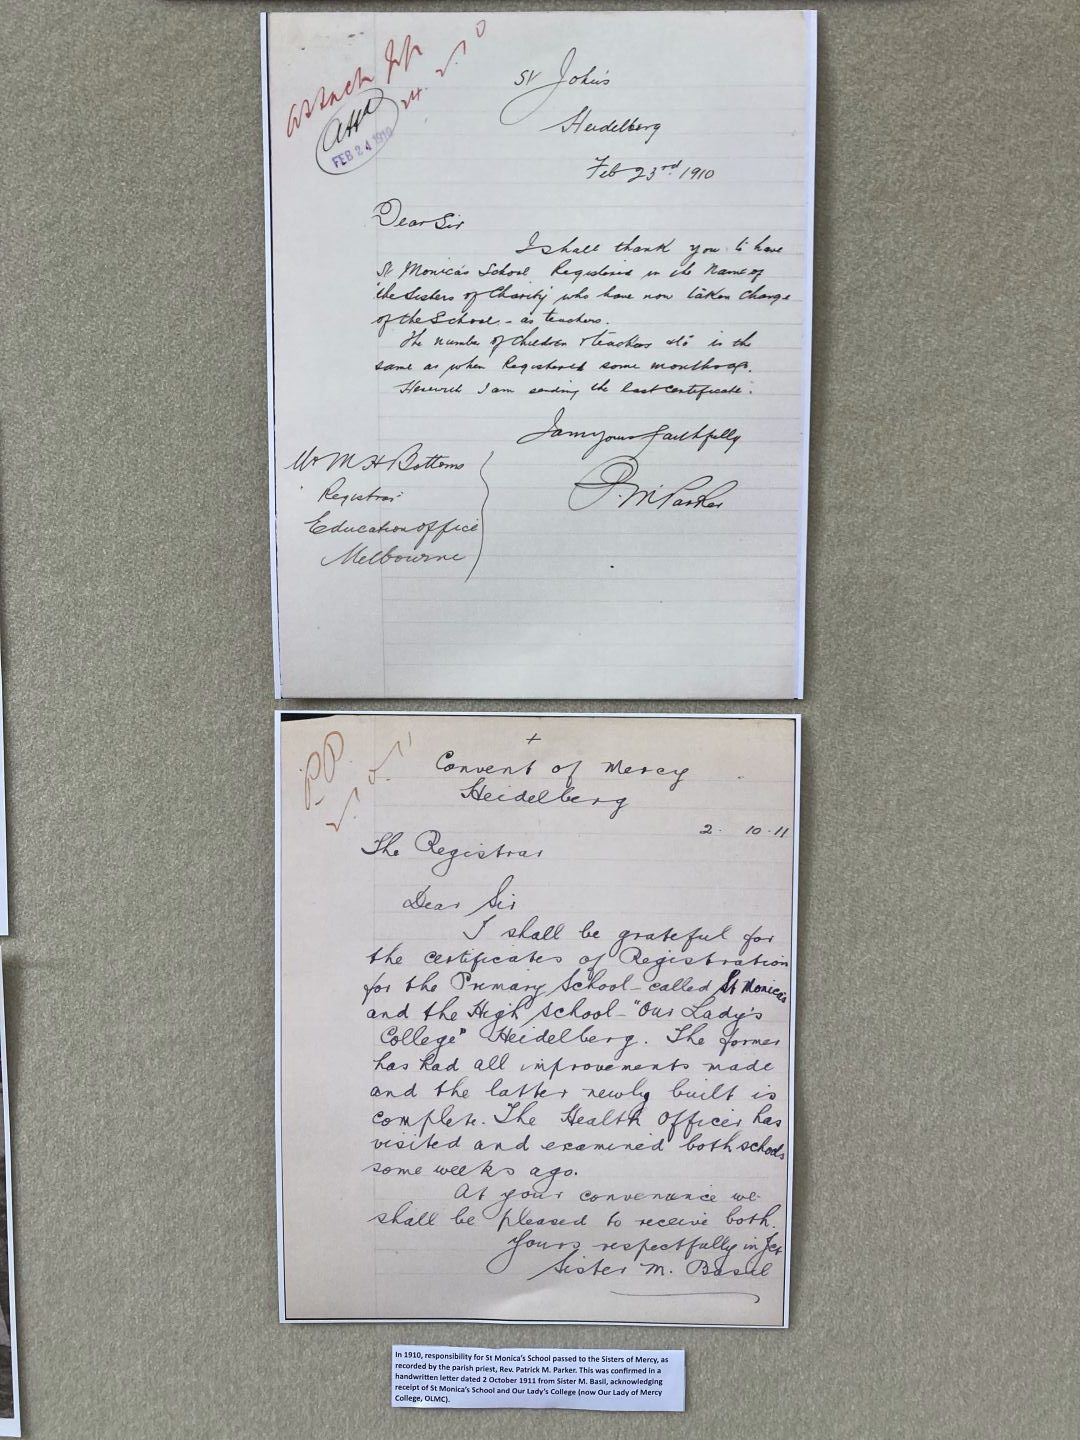 Attach
24.2.10
FEB 24 1910
St John's
Heidelberg
Feb 23rd 1910
Dear Sir
I shall thank you to have
St Monica's School Registered in the Name of
the Sisters of Charity who have now taken charge
of the School - as teachers.
The number of children & teachers etc is the
same as when Registered some months ago.
Herewith I am sending the last certificate.
I am yours faithfully
P. M Parker
Mr M H Bottoms
Registrar
Education office
Melbourne
+
Convent of Mercy
Heidelberg
2. 10. 11
The Registrar
Dear Sir
I shall be grateful for
the certificates of Registration
for the Primary School - called St Monica's
and the High School - "Our Lady's
College" Heidelberg. The former
has had all improvements made
and the latter newly built is
complete. The Health Officer has
visited and examined both schools
some weeks ago.
At your convenience we
shall be pleased to receive both.
Yours respectfully in
Sister M. Basil
In 1910, responsibility for St Monica's School passed to the Sisters of Mercy, as
recorded by the parish priest, Rev. Patrick M. Parker. This was confirmed in a
handwritten letter dated 2 October 1911 from Sister M. Basil, acknowledging
receipt of St Monica's School and Our Lady's College (now Our Lady of Mercy
College, OLMC).